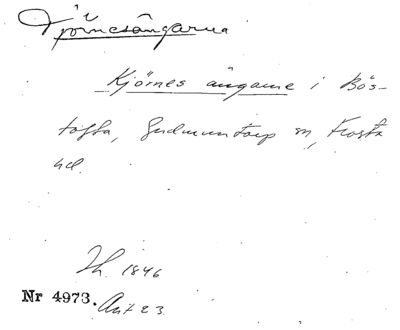 Tjörnesängarna
Kjörnes ängarne i Bös-
tofta, Gudmuntorp sn, Frosta
hd.
Th. 1846
Nr 4973. Akt 23.